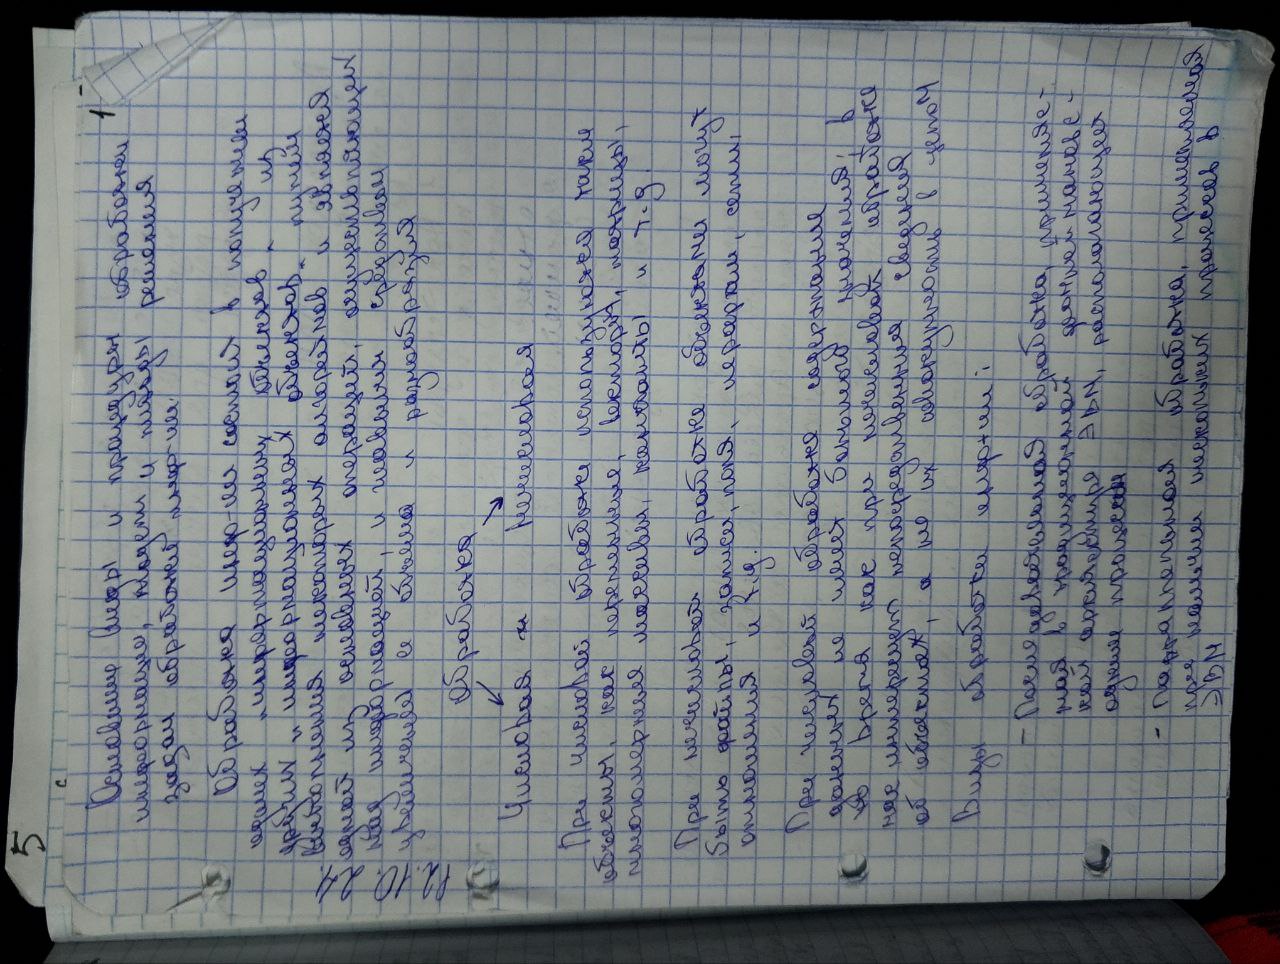 5
1
12.10.24.
Основные виды и процедуры обработки
информации, модели и методы решения
задач обработки инф-ии.
Обработка инф-ии состоит в получении
одних "информационных объектов" из
других "информационных объектов" путём
выполнения некоторых алгоритмов и является
одной из основных операций, осуществляющей
над информацией, и главным средством
увеличения её объёма и разнообразия
обработка
Числовая и нечисловая
При числовой обработке используются такие
объекты, как переменные, векторы, матрицы,
многомерные массивы, константы и т.д.
При нечисловой обработке объектами могут
быть файлы, записи, поля, иерархии, сети,
отношения и т.д.
При числовой обработке содержание
данных не имеет большого значения, в
то время как при нечисловой обработке
нас интересуют непосредственные сведения
об объектах, а не их совокупность в целом
Виды обработки информации:
- Последовательная обработка, применяе-
мая в традиционной фоннеймановс-
кой архитектуре ЭВМ, располагающих
одним процессом
- Параллельная обработка, применяемая
при наличии нескольких процессов в
ЭВМ